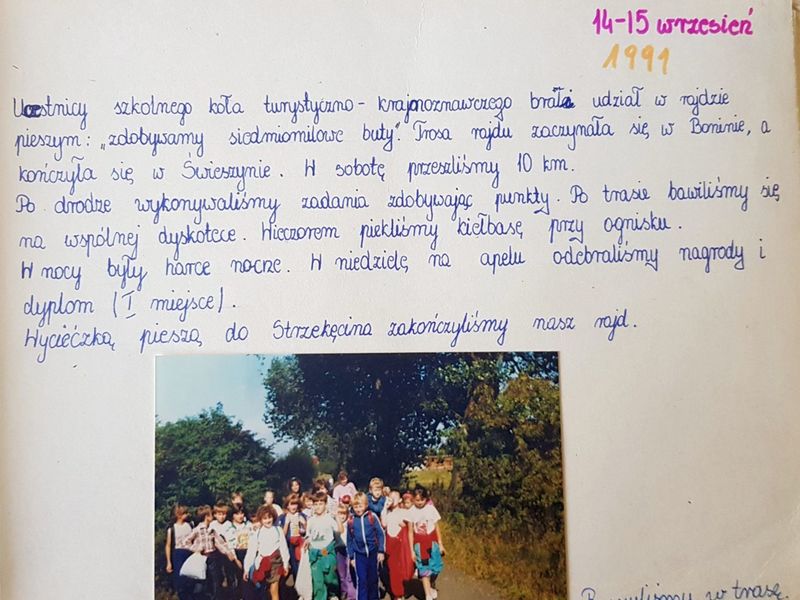 14-15 wrzesień
1991
Uczestnicy szkolnego koła turystyczno-krajonoznawczego brali udział w rajdzie
pieszym: „zdobywamy siedmiomilowe buty". Trasa rajdu zaczynała się w Boninie, a
kończyła się w Świeszynie. W sobotę przeszliśmy 10 km.
Po drodze wykonywaliśmy zadania zdobywając punkty. Po trasie bawiliśmy się
na wspólnej dyskotece. Wieczorem piekliśmy kiełbasę przy ognisku.
W nocy były harce nocne. W niedzielę na apelu odebraliśmy nagrody i
dyplom (I miejsce).
Wycieczką pieszą do Strzekęcina zakończyliśmy nasz rajd.
w trasę.